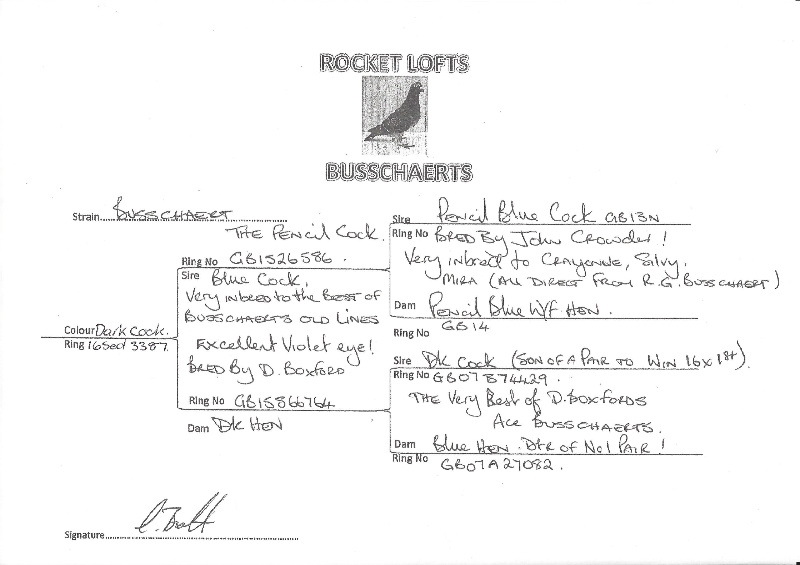 ROCKET LOFTS
BUSSCHAERTS
Strain BUSSCHAERT
THE PENCIL COCK.
Ring No GB1526586.
Sire Blue Cock,
Very inbred to the BEST of
BUSSCHAERTS OLD LINES
Excellent Violet eye!
BRED By D. BOXFORD
Colour Dark Cock.
Ring 16Sed 3387
Ring No GB15866764
Dam DK HEN
Sire Pencil Blue Cock GB13N
Ring No BRED By John Crowder!
Very inbred to Crayonne, Silvy,
MIRA (ALL DIRECT FROM R.G. BUSSCHAERT)
Dam Pencil Blue W/F HEN.
Ring No GB14
Sire DK Cock (SON OF A PAIR TO WIN 16x1st).
Ring No GB07B74429.
THE Very Best of D. BOXFORDS
Ace BUSSCHAERTS.
Dam Blue HEN. DTR OF No1 PAIR!
Ring No GB07A27082.
Signature